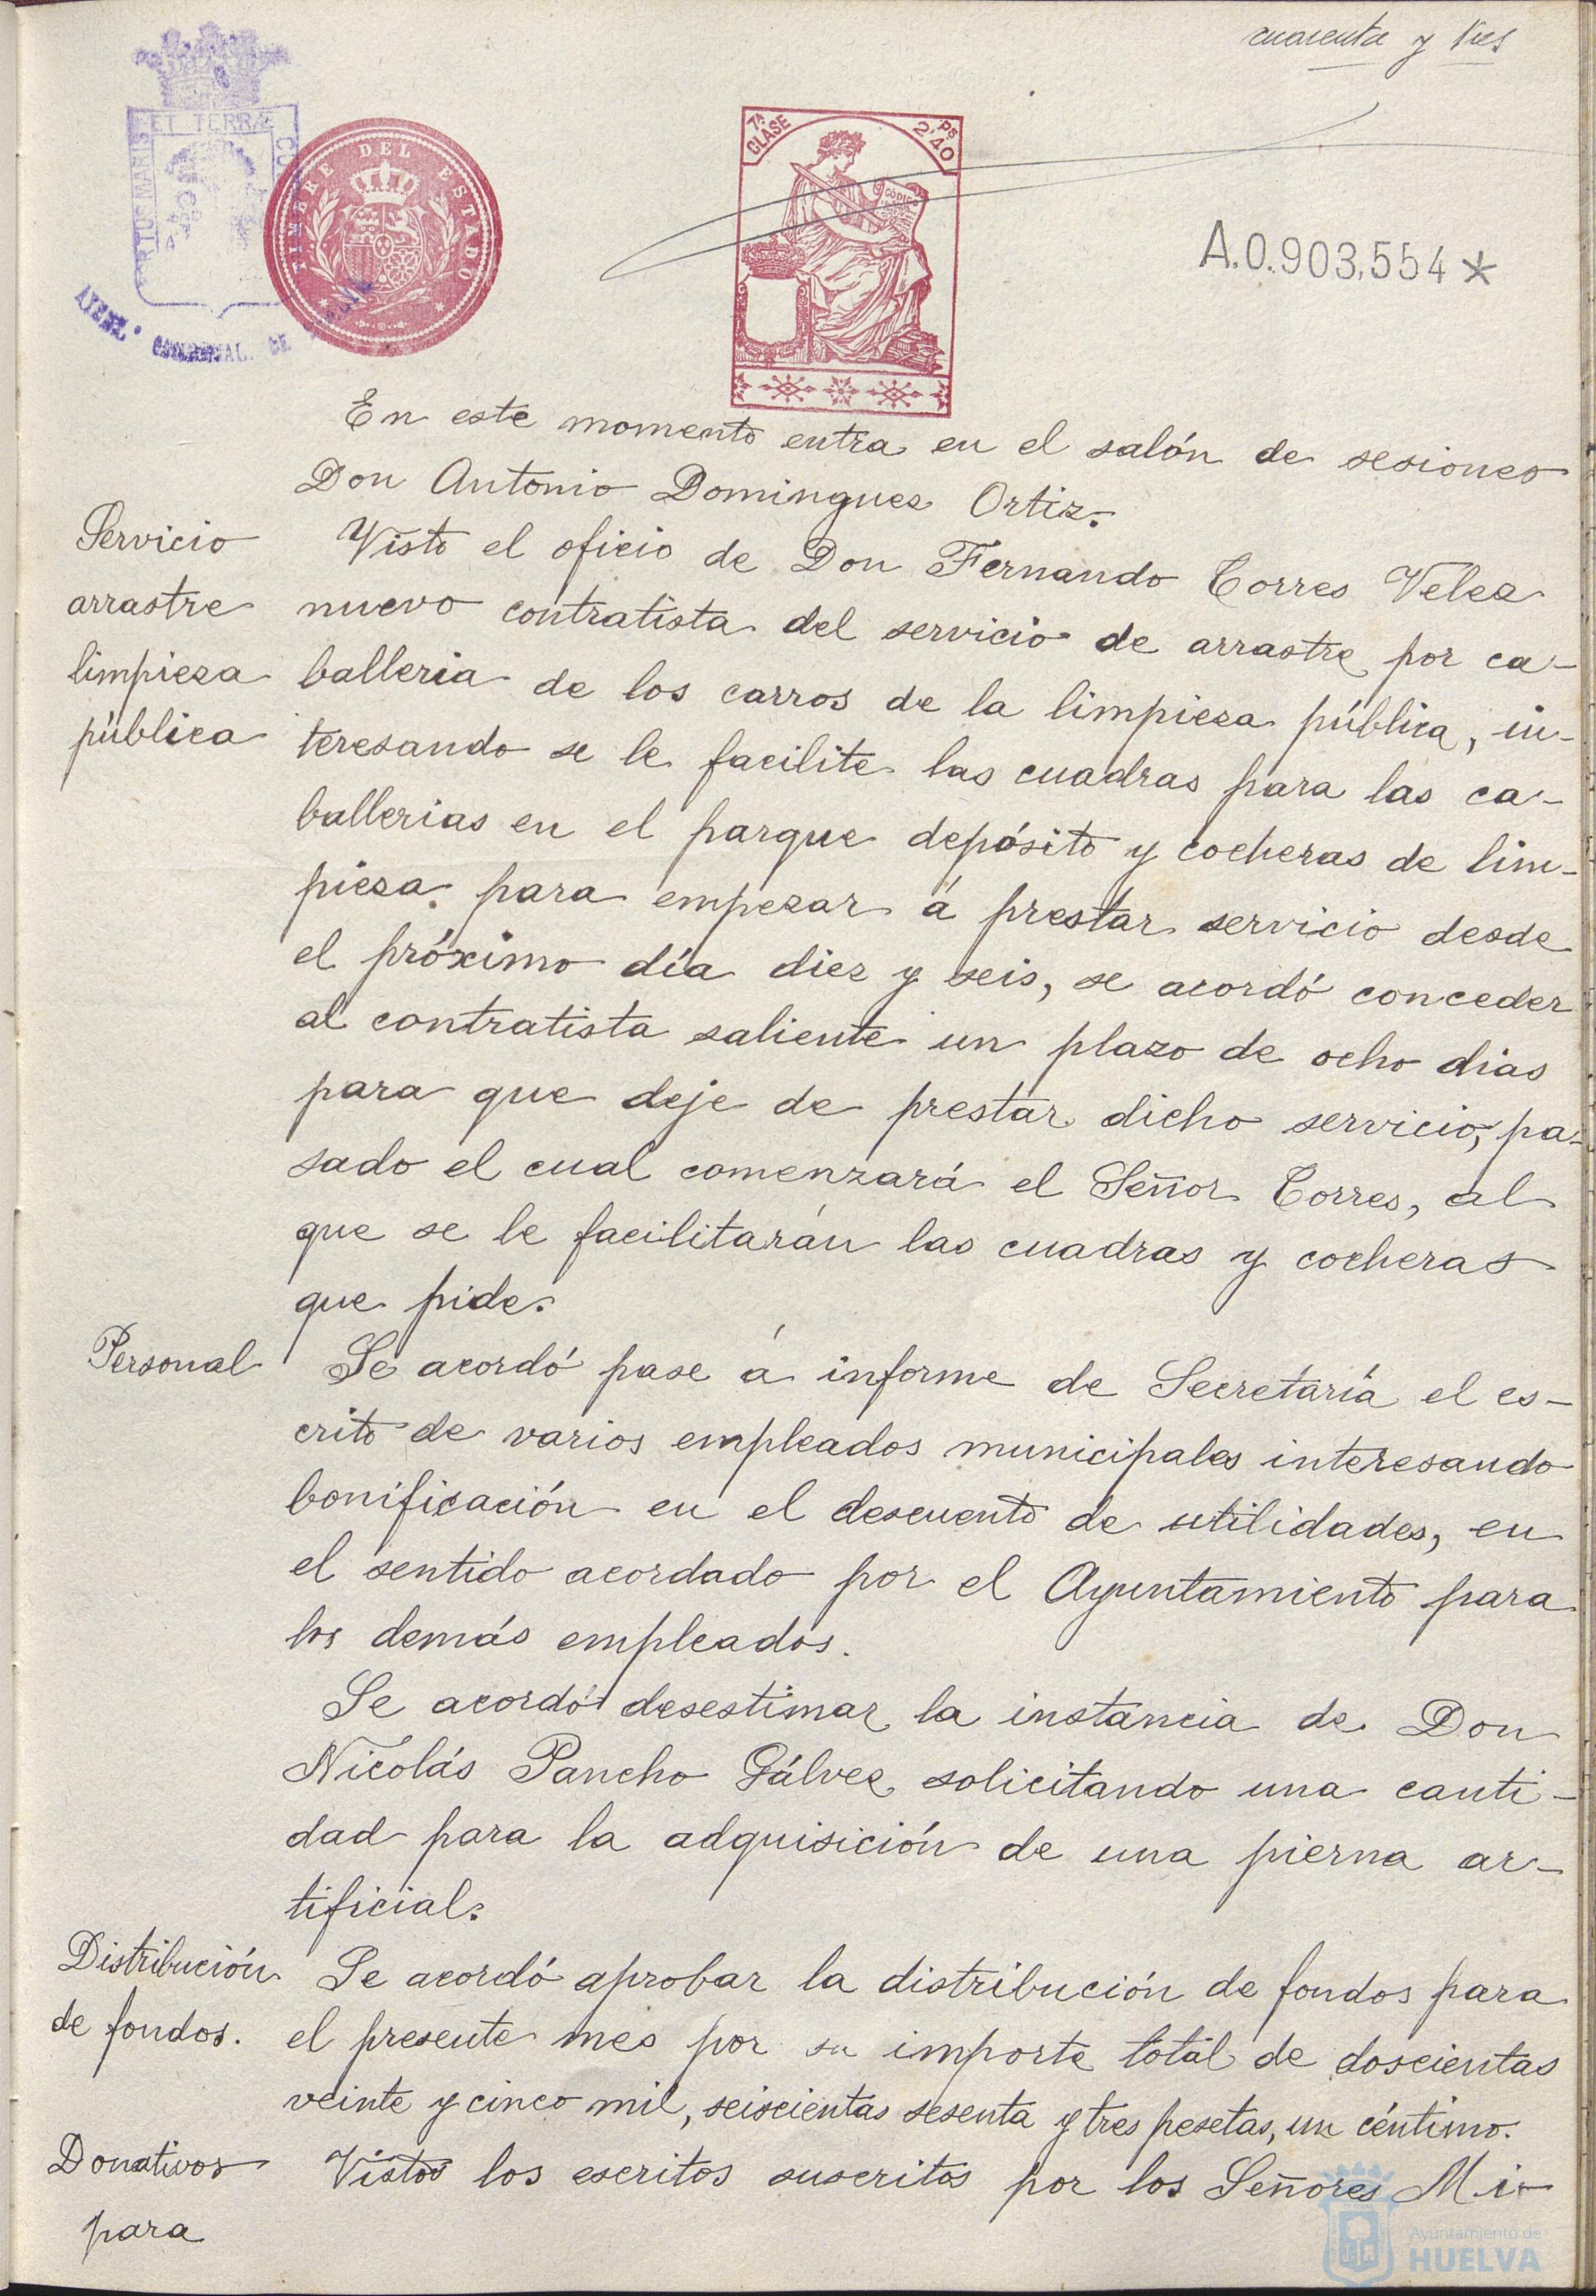 cuarenta y tres
ET TERRÆ
TIMBRE DEL ESTADO
7ª CLASE
2'40 Ps
A.0.903,554*
En este momento entra en el salón de sesiones
Don Antonio Dominguez Ortiz.
Servicio
arrastre
limpieza
pública
Visto el oficio de Don Fernando Torres Velez
nuevo contratista del servicio de arrastre por ca-
balleria de los carros de la limpieza pública, in-
teresando se le facilite las cuadras para las ca-
ballerias en el parque depósito y cocheras de lim-
pieza para empezar á prestar servicio desde
el próximo día diez y seis, se acordó conceder
al contratista saliente un plazo de ocho dias
para que deje de prestar dicho servicio, pa-
sado el cual comenzará el Señor Torres, al
que se le facilitarán las cuadras y cocheras
que pide.
Personal
Se acordó pase á informe de Secretaría el es-
crito de varios empleados municipales interesando
bonificación en el descuento de utilidades, en
el sentido acordado por el Ayuntamiento para
los demás empleados.
Se acordó desestimar la instancia de Don
Nicolás Pancho Gálvez solicitando una canti-
dad para la adquisición de una pierna ar-
tificial.
Distribución
de fondos.
Se acordó aprobar la distribución de fondos para
el presente mes por su importe total de doscientas
veinte y cinco mil, seiscientas sesenta y tres pesetas, un céntimo.
Donativos
para
Vistos los escritos suscritos por los Señores Mi-
Ayuntamiento de
HUELVA